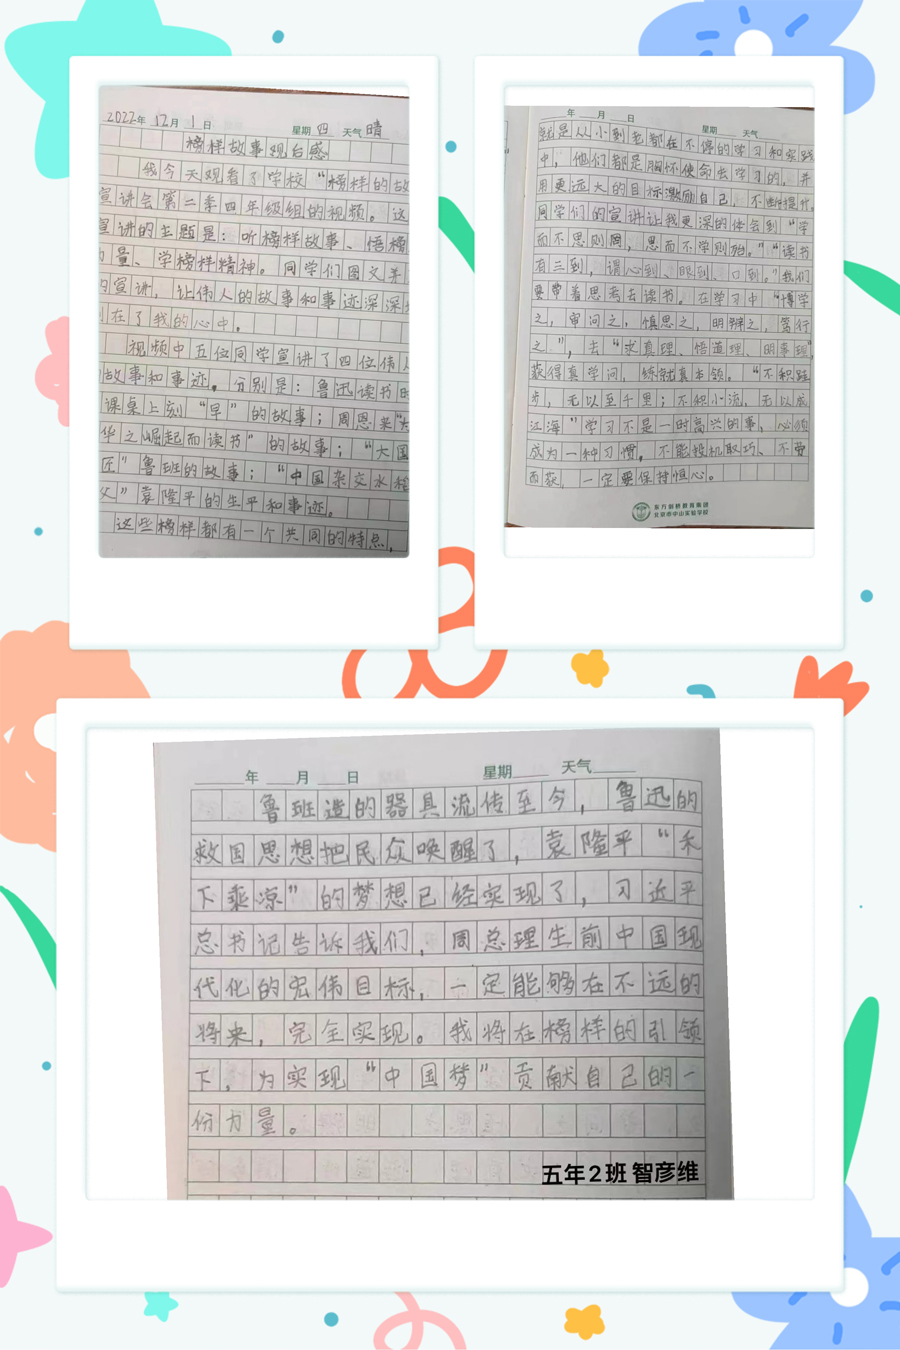 2022年 12月 1日 星期四 天气晴
榜样故事观后感
我今天观看了学校“榜样的故
宣讲会第二季四年级组的视频。这
宣讲的主题是：听榜样故事、悟榜
力量、学榜样精神。同学们图文并
的宣讲，让伟人的故事和事迹深深
刻在了我的心中。
视频中五位同学宣讲了四位伟人
故事和事迹。分别是：鲁迅读书时
课桌上刻“早”的故事；周恩来“
华之崛起而读书”的故事；“大国
匠”鲁班的故事；“中国杂交水稻
父”袁隆平的生平和事迹。
这些榜样都有一个共同的特点，
年 月 日 星期 天气
就是从小到老都在不停的学习和实践
中，他们都是胸怀使命去学习的，并
用更远大的目标激励自己，不断提升。
同学们的宣讲让我更深的体会到“学
而不思则罔，思而不学则殆。”“读书
有三到，谓心到、眼到、口到。”我们
要带着思考去读书。在学习中“博学
之，审问之，慎思之，明辩之，笃行
之”，去“求真理、悟道理、明事理”，
获得真学问，练就真本领。“不积跬
步，无以至千里；不积小流，无以成
江海”学习不是一时高兴的事，必须
成为一种习惯。不能投机取巧、不劳
而获，一定要保持恒心。
东方剑桥教育集团
北京市中山实验学校
年 月 日 星期 天气
鲁班造的器具流传至今，鲁迅的
救国思想把民众唤醒了，袁隆平“禾
下乘凉”的梦想已经实现了，习近平
总书记告诉我们，周总理生前中国现
代化的宏伟目标，一定能够在不远的
将来，完全实现。我将在榜样的引领
下，为实现“中国梦”贡献自己的一
份力量。
五年2班 智彦维